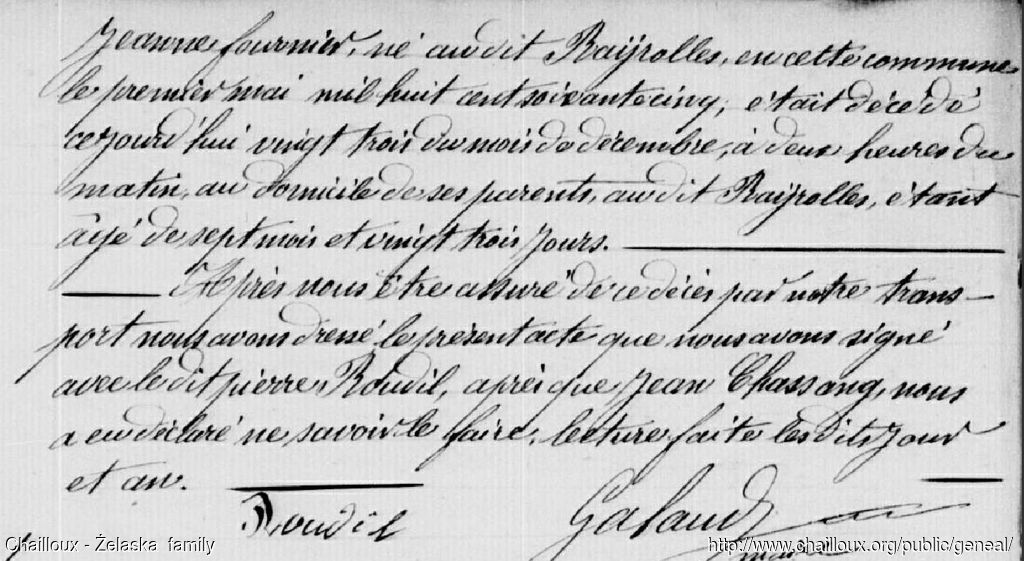 Jeanne fournier, né au dit Rayrolles, en cette commune
le premier mai mil huit cent soixante cinq, était décédé
cejourd'hui vingt trois du mois de décembre, à deux heures du
matin, au domicile de ses parents, au dit Rayrolles, étant
âgé de sept mois et vingt trois jours.
Après nous être assuré de ce décès par notre trans-
port nous avons dressé le présent acte que nous avons signé
avec le dit pierre Roudil, après que Jean Chassang, nous
a eu déclaré ne savoir le faire, lecture faite les dits jour
et an.
Roudil Galaud
maire
Chailloux - Żelaska family http://www.chailloux.org/public/geneal/